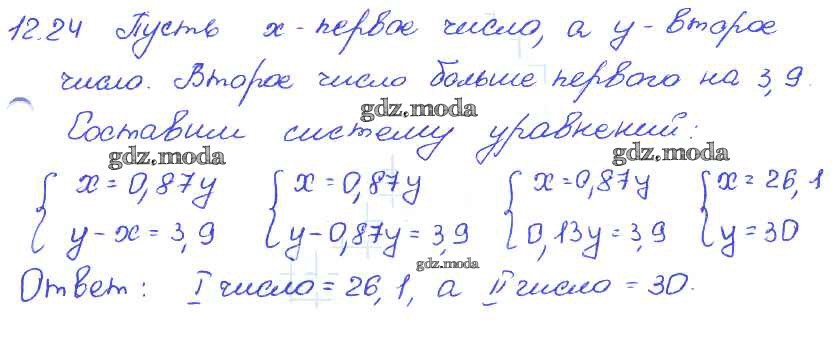 12.24 Пусть x - первое число, а y - второе
число. Второе число больше первого на 3,9.
gdz.moda
Составим систему уравнений:
gdz.moda gdz.moda
{ x = 0,87y { x = 0,87y { x = 0,87y { x = 26,1
y - x = 3,9 y - 0,87y = 3,9 0,13y = 3,9 y = 30
gdz.moda
Ответ: I число = 26,1, а II число = 30.